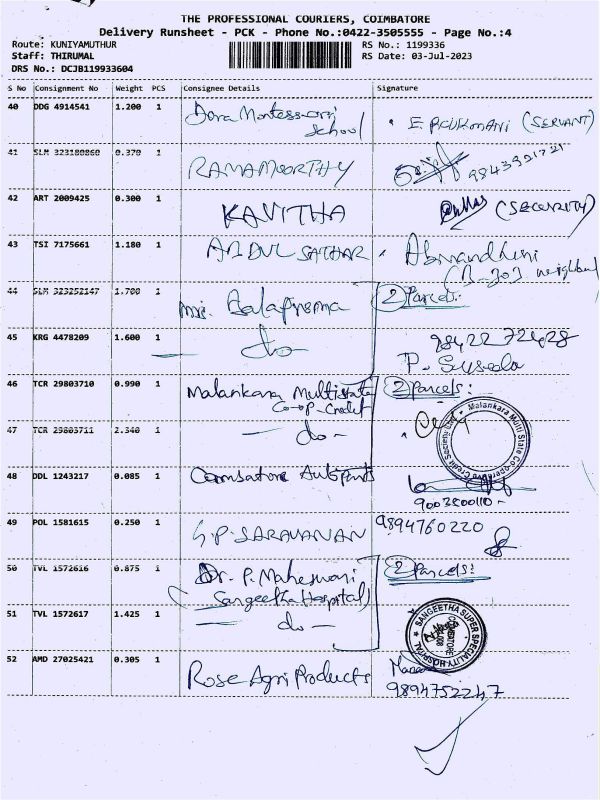 THE PROFESSIONAL COURIERS, COIMBATORE
Delivery Runsheet - PCK - Phone No.:0422-3505555 - Page No.:4
Route: KUNIYAMUTHUR
RS No.: 1199336
Staff: THIRUMAL
RS Date: 03-Jul-2023
DRS No.: DCJB119933604
S No Consignment No Weight PCS Consignee Details Signature
40 DDG 4914541 1.200 1 Dora Montessori School E. RUKMANI (SERVANT)
41 SLM 323180860 0.370 1 RAMAMOORTHY
42 ART 2009425 0.300 1 KAVITHA (SECURITY)
43 TSI 7175661 1.180 1 ABDUL SATHAR
44 SLM 323252147 1.700 1 Balaprema 2 Parcels:
45 KRG 4478209 1.600 1 - do - 98422 72428
P. Suseela
46 TCR 29803710 0.990 1 Malankara Multistate 2 Parcels:
Co-op-Credit
Malankara Multi State Co-operative Credit Society Ltd
47 TCR 29803711 2.340 1 - do -
48 DDL 1243217 0.085 1 Coimbatore Autoparts
9003500110
49 POL 1581615 0.250 1 S.P. SARAVANAN 9894760220
50 TVL 1572616 0.875 1 Dr. P. Maheswari 2 Parcels:
(Sangeetha Hospital)
51 TVL 1572617 1.425 1 - do -
SANGEETHA SUPER SPECIALITY HOSPITAL
52 AMD 27025421 0.305 1 Rose Agri Products
9894752247